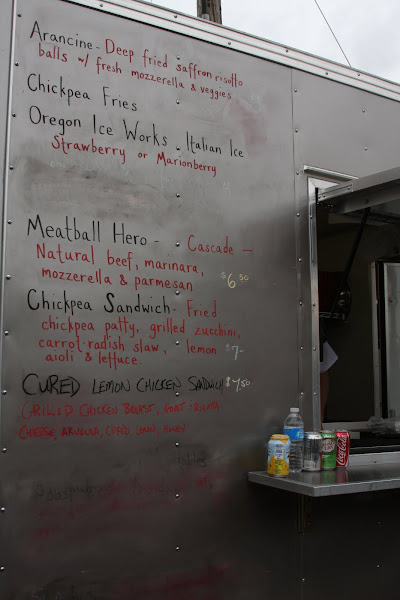 Arancine - Deep fried saffron risotto
balls w/ fresh mozzerella & veggies
Chickpea Fries
Oregon Ice Works - Italian Ice
Strawberry or Marionberry
Meatball Hero - Cascade -
Natural beef, marinara,
mozzerella & parmesan $6.50
Chickpea Sandwich - Fried
chickpea patty, grilled zucchini,
carrot-radish slaw, lemon $7-
aioli & lettuce.
CURED LEMON CHICKEN SANDWICH $7.50
GRILLED CHICKEN BREAST, GOAT-RICOTTA
CHEESE, ARUGULA, CURED LEMON, HONEY
Coca-Cola